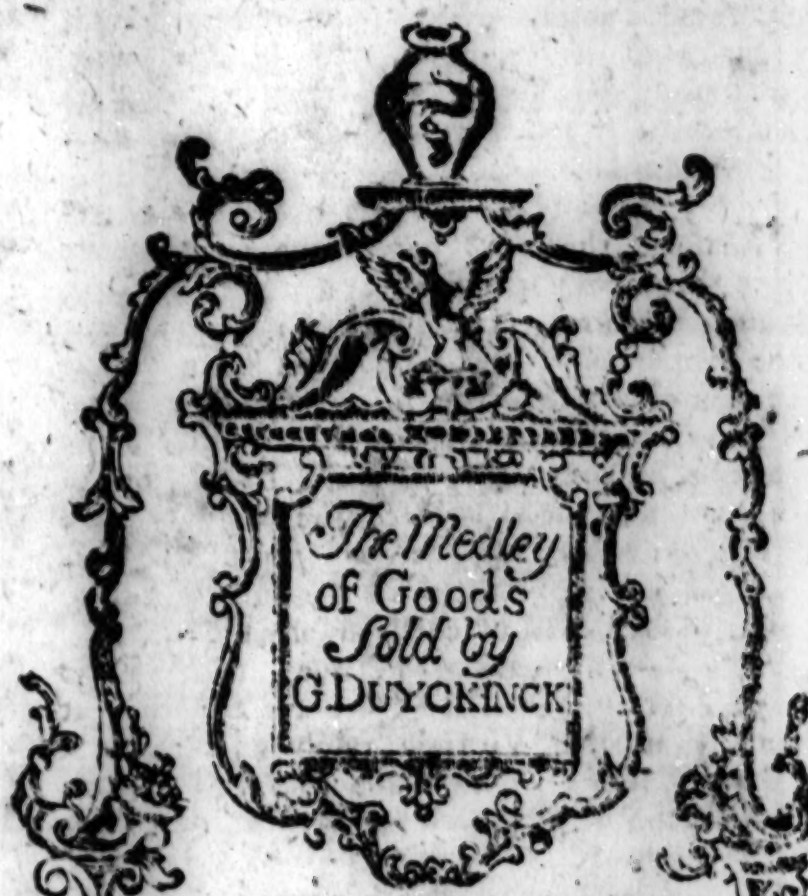 The Medley
of Goods
Sold by
G. DUYCKINCK